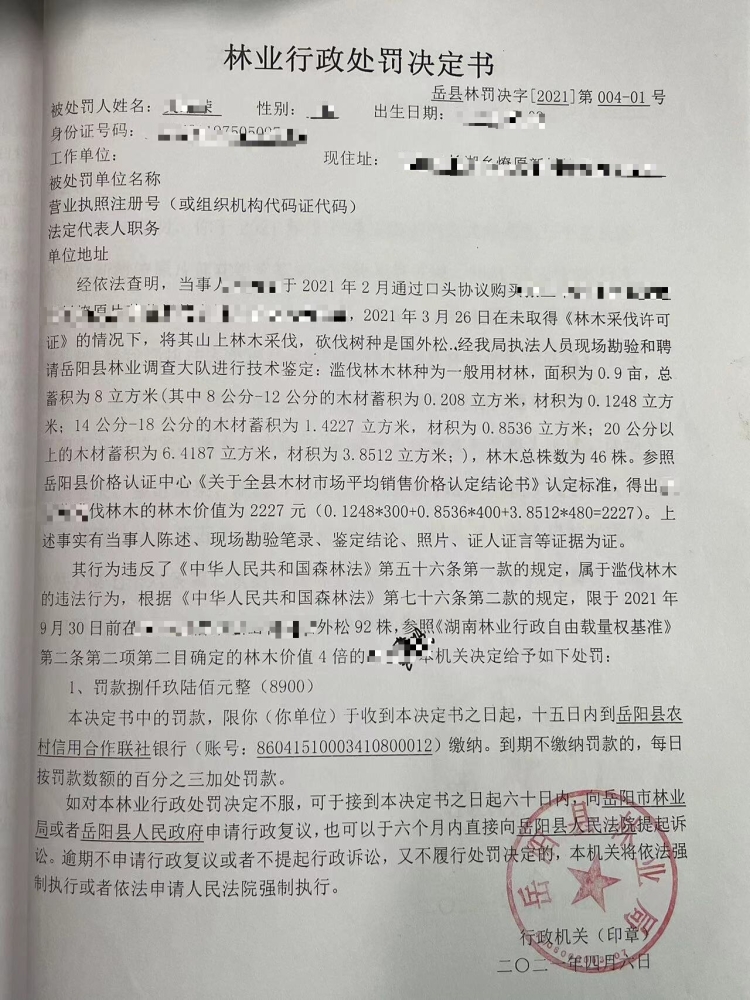 林业行政处罚决定书
岳县林罚决字[2021]第 004-01 号
被处罚人姓名： 性别： 出生日期：
身份证号码：
工作单位： 现住址：
被处罚单位名称
营业执照注册号（或组织机构代码证代码）
法定代表人职务
单位地址
经依法查明，当事人 于 2021 年 2 月通过口头协议购买
，2021 年 3 月 26 日在未取得《林木采伐许可
证》的情况下，将其山上林木采伐，砍伐树种是国外松.经我局执法人员现场勘验和聘
请岳阳县林业调查大队进行技术鉴定：滥伐林木林种为一般用材林，面积为 0.9 亩，总
蓄积为 8 立方米(其中 8 公分-12 公分的木材蓄积为 0.208 立方米，材积为 0.1248 立方
米；14 公分-18 公分的木材蓄积为 1.4227 立方米，材积为 0.8536 立方米；20 公分以
上的木材蓄积为 6.4187 立方米，材积为 3.8512 立方米；)，林木总株数为 46 株。参照
岳阳县价格认证中心《关于全县木材市场平均销售价格认定结论书》认定标准，得出
伐林木的林木价值为 2227 元（0.1248*300+0.8536*400+3.8512*480=2227)。上
述事实有当事人陈述、现场勘验笔录、鉴定结论、照片、证人证言等证据为证。
其行为违反了《中华人民共和国森林法》第五十六条第一款的规定，属于滥伐林木
的违法行为，根据《中华人民共和国森林法》第七十六条第二款的规定，限于 2021 年
9 月 30 日前在 外松 92 株，参照《湖南林业行政自由载量权基准》
第二条第二项第二目确定的林木价值 4 倍的 本机关决定给予如下处罚：
1、罚款捌仟玖陆佰元整（8900）
本决定书中的罚款，限你（你单位）于收到本决定书之日起，十五日内到岳阳县农
村信用合作联社银行（账号：86041510003410800012）缴纳。到期不缴纳罚款的，每日
按罚款数额的百分之三加处罚款。
如对本林业行政处罚决定不服，可于接到本决定书之日起六十日内，向岳阳市林业
局或者岳阳县人民政府申请行政复议，也可以于六个月内直接向岳阳县人民法院提起诉
讼。逾期不申请行政复议或者不提起行政诉讼，又不履行处罚决定的，本机关将依法强
制执行或者依法申请人民法院强制执行。
岳阳县林业局
行政机关（印章）
二〇二一年四月六日